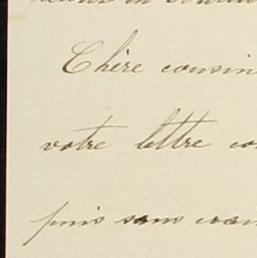 Chère cousin
votre lettre co
puis sans